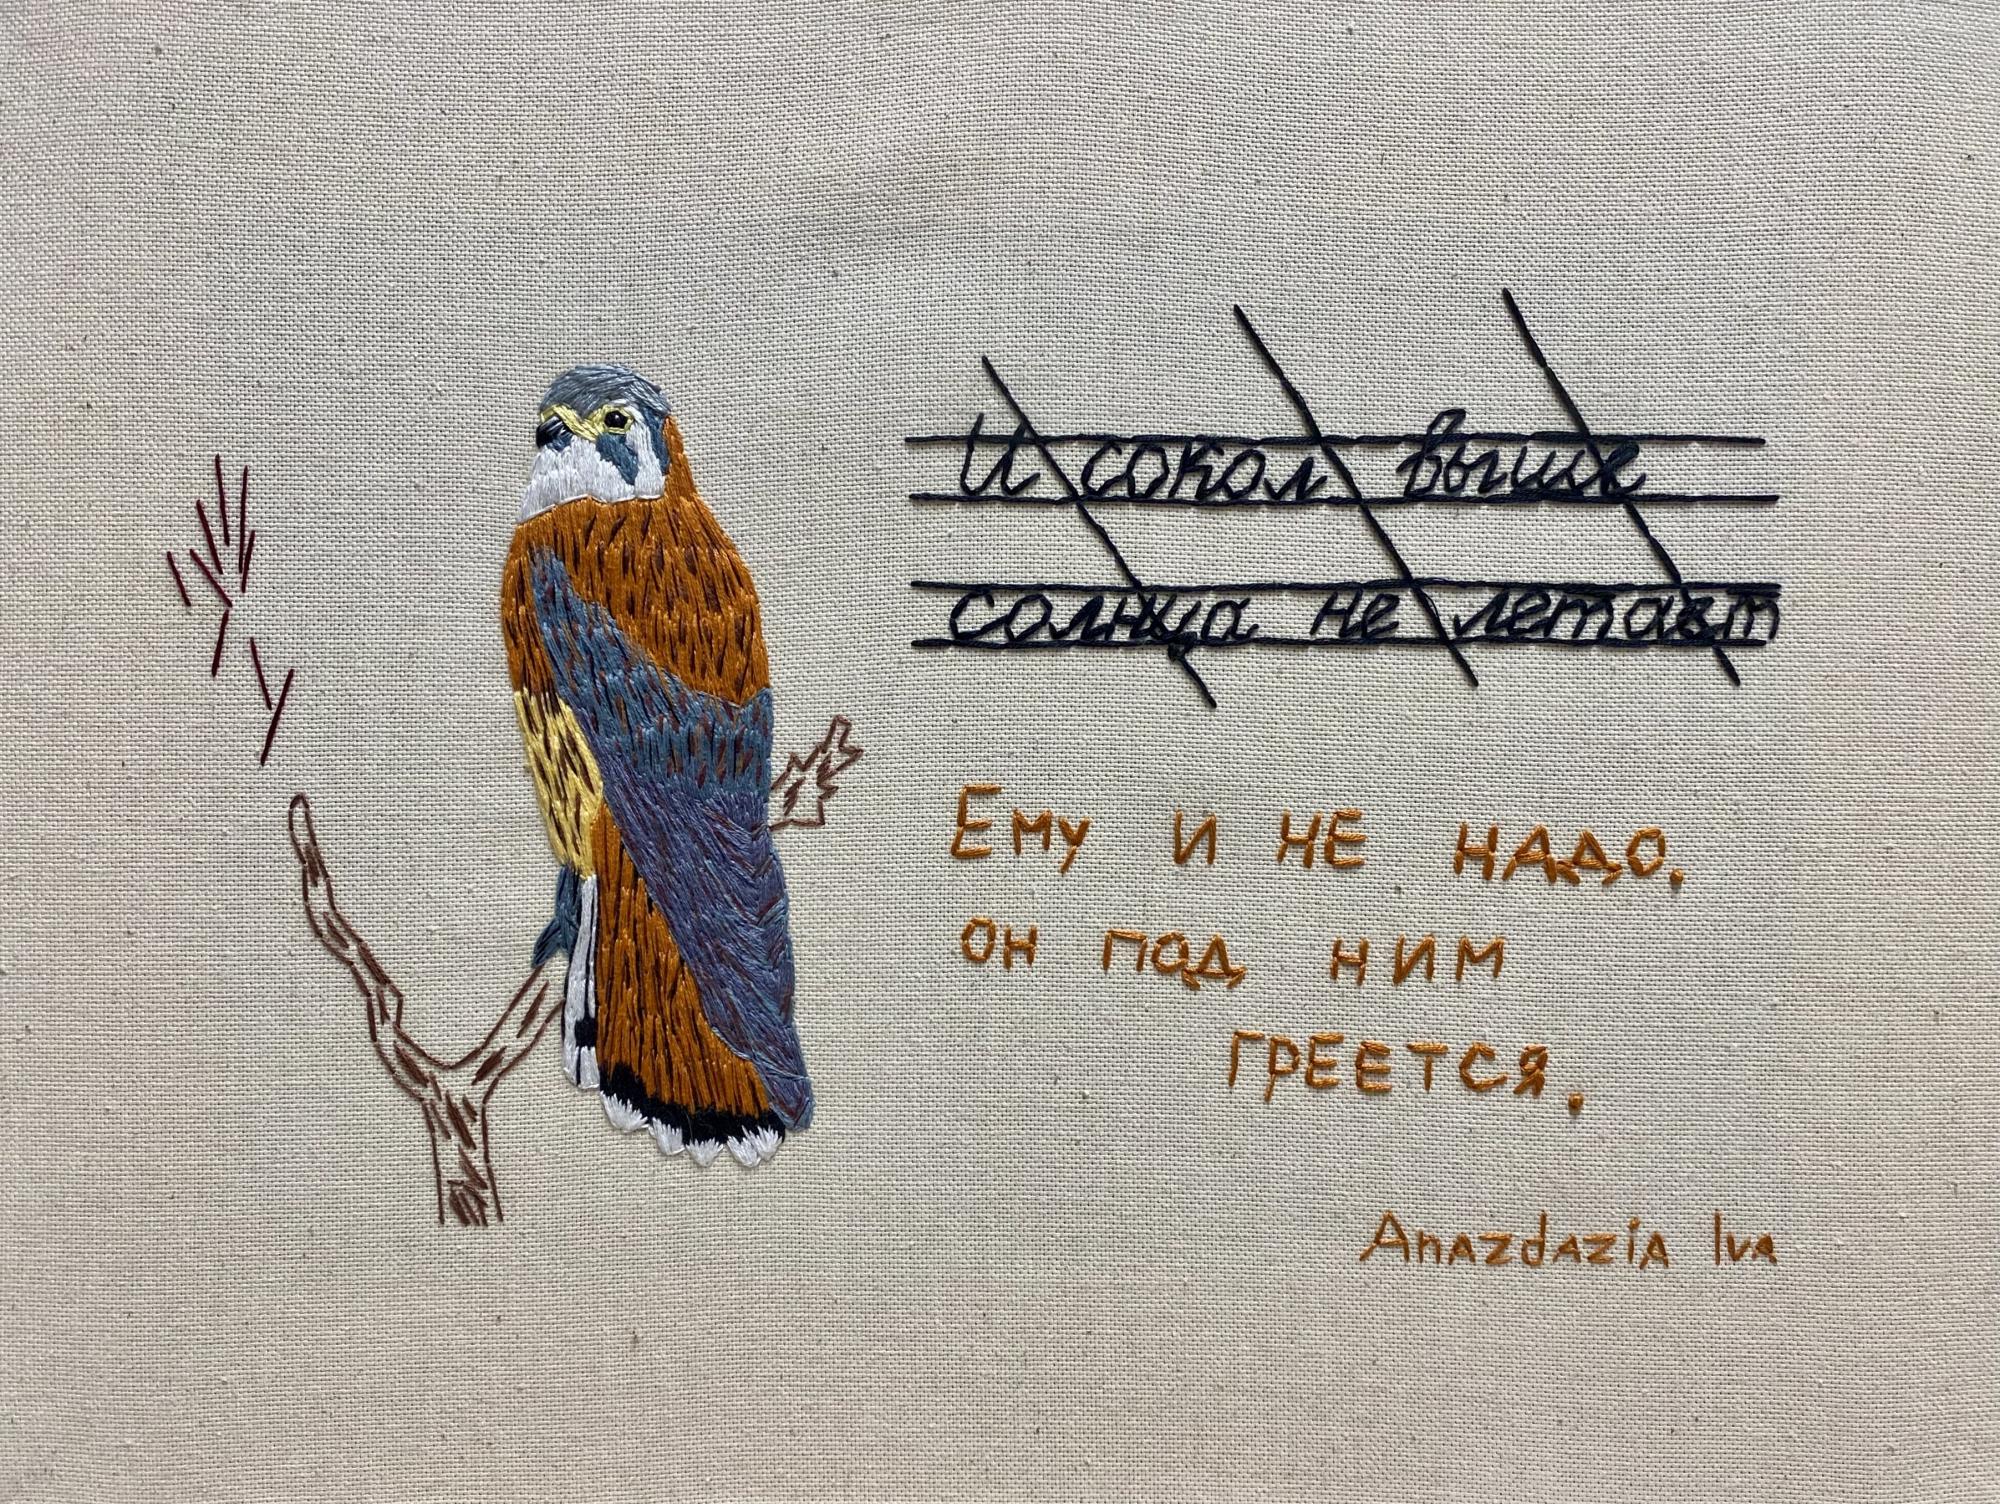 И сокол выше
солнца не летает
Ему и не надо.
он под ним
греется.
Anazdazia Iva